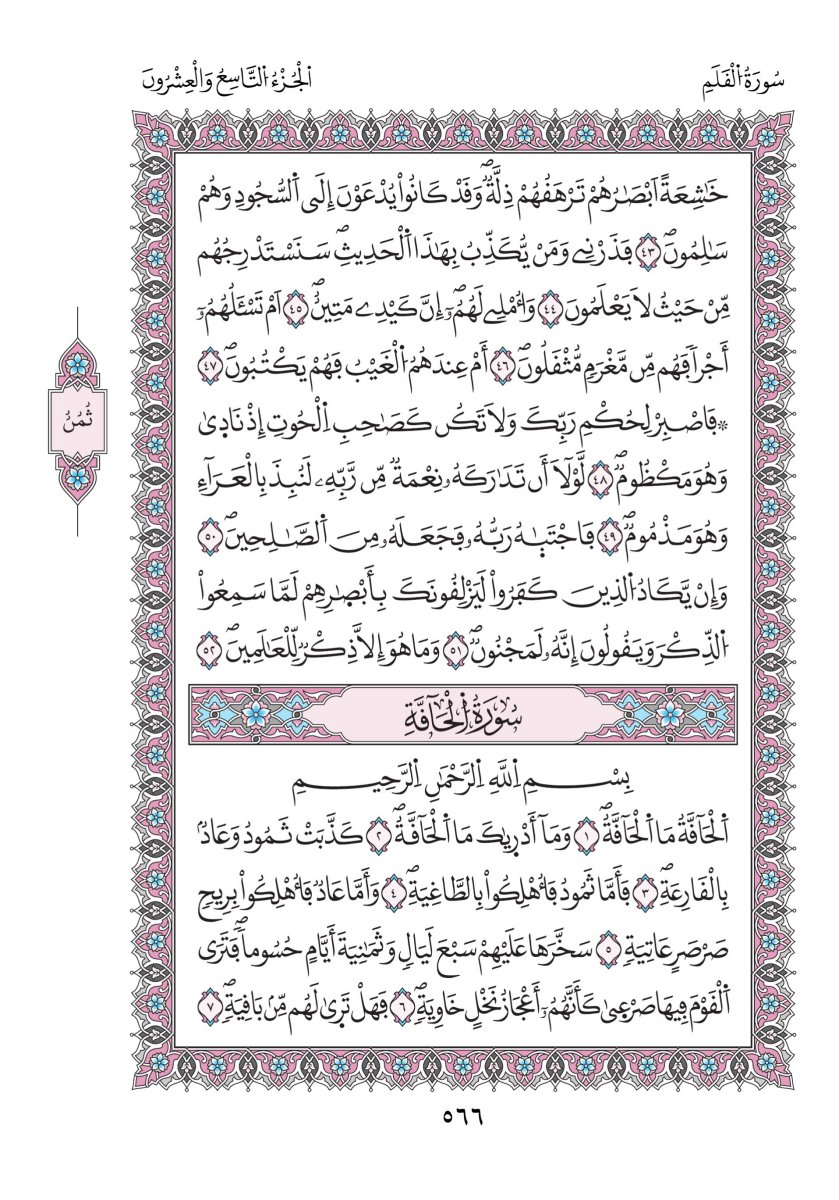 سُورَةُ اُ۬لْقَلَمِ
اَ۬لْجُزْءُ اُ۬لتَّاسِعُ وَالْعِشْرُونَ
خَٰشِعَةً اَبْصَٰرُهُمْ تَرْهَقُهُمْ ذِلَّةٞۖ وَقَدْ كَانُواْ يُدْعَوْنَ إِلَي اَ۬لسُّجُودِ وَهُمْ
سَٰلِمُونَۖ ٤٣ فَذَرْنِے وَمَنْ يُّكَذِّبُ بِهَٰذَا اَ۬لْحَدِيثِۖ سَنَسْتَدْرِجُهُم
مِّنْ حَيْثُ لَا يَعْلَمُونَ ٤٤ وَأُمْلِے لَهُمُۥٓۖ إِنَّ كَيْدِے مَتِينٌۖ ٤٥ اَمْ تَسْـَٔلُهُمُۥٓ
أَجْراٗ فَهُم مِّن مَّغْرَمٖ مُّثْقَلُونَۖ ٤٦ أَمْ عِندَهُمُ اُ۬لْغَيْبُ فَهُمْ يَكْتُبُونَۖ ٤٧
۞فَاصْبِرْ لِحُكْمِ رَبِّكَ وَلَا تَكُن كَصَٰحِبِ اِ۬لْحُوتِ إِذْ نَادٜىٰ
وَهُوَ مَكْظُومٞۖ ٤٨ لَّوْلَآ أَن تَدَٰرَكَهُۥ نِعْمَةٞ مِّن رَّبِّهِۦ لَنُبِذَ بِالْعَرَآءِ
وَهُوَ مَذْمُومٞۖ ٤٩ فَاجْتَبَٰهُ رَبُّهُۥ فَجَعَلَهُۥ مِنَ اَ۬لصَّٰلِحِينَۖ ٥٠
وَإِنْ يَّكَادُ اُ۬لذِينَ كَفَرُواْ لَيَزْلِقُونَكَ بِأَبْصٰ۪رِهِمْ لَمَّا سَمِعُواْ
اُ۬لذِّكْرَ وَيَقُولُونَ إِنَّهُۥ لَمَجْنُونٞۖ ٥١ وَمَا هُوَ إِلَّا ذِكْرٞ لِّلْعَٰلَمِينَۖ ٥٢
سُورَةُ اُ۬لْحَآقَّةِ
بِسْمِ اِ۬للَّهِ اِ۬لرَّحْمَٰنِ اِ۬لرَّحِيمِ
اَ۬لْحَآقَّةُ مَا اَ۬لْحَآقَّةُۖ ١ وَمَآ أَدْر۪يٰكَ مَا اَ۬لْحَآقَّةُۖ ٢ كَذَّبَتْ ثَمُودُ وَعَادُۢ
بِالْقَارِعَةِۖ ٣ فَأَمَّا ثَمُودُ فَأُهْلِكُواْ بِالطَّاغِيَةِۖ ٤ وَأَمَّا عَادٞ فَأُهْلِكُواْ بِرِيحٖ
صَرْصَرٍ عَاتِيَةٖ ٥ سَخَّرَهَا عَلَيْهِمْ سَبْعَ لَيَالٖ وَثَمَٰنِيَةَ أَيَّامٍ حُسُوماٗۖ فَتَرَي
اَ۬لْقَوْمَ فِيهَا صَرْع۪يٰ كَأَنَّهُمُۥٓ أَعْجَازُ نَخْلٍ خَاوِيَةٖۖ ٦ فَهَلْ تَر۪يٰ لَهُم مِّنۢ بَاقِيَةٖۖ ٧
ثُمُنُ
٥٦٦